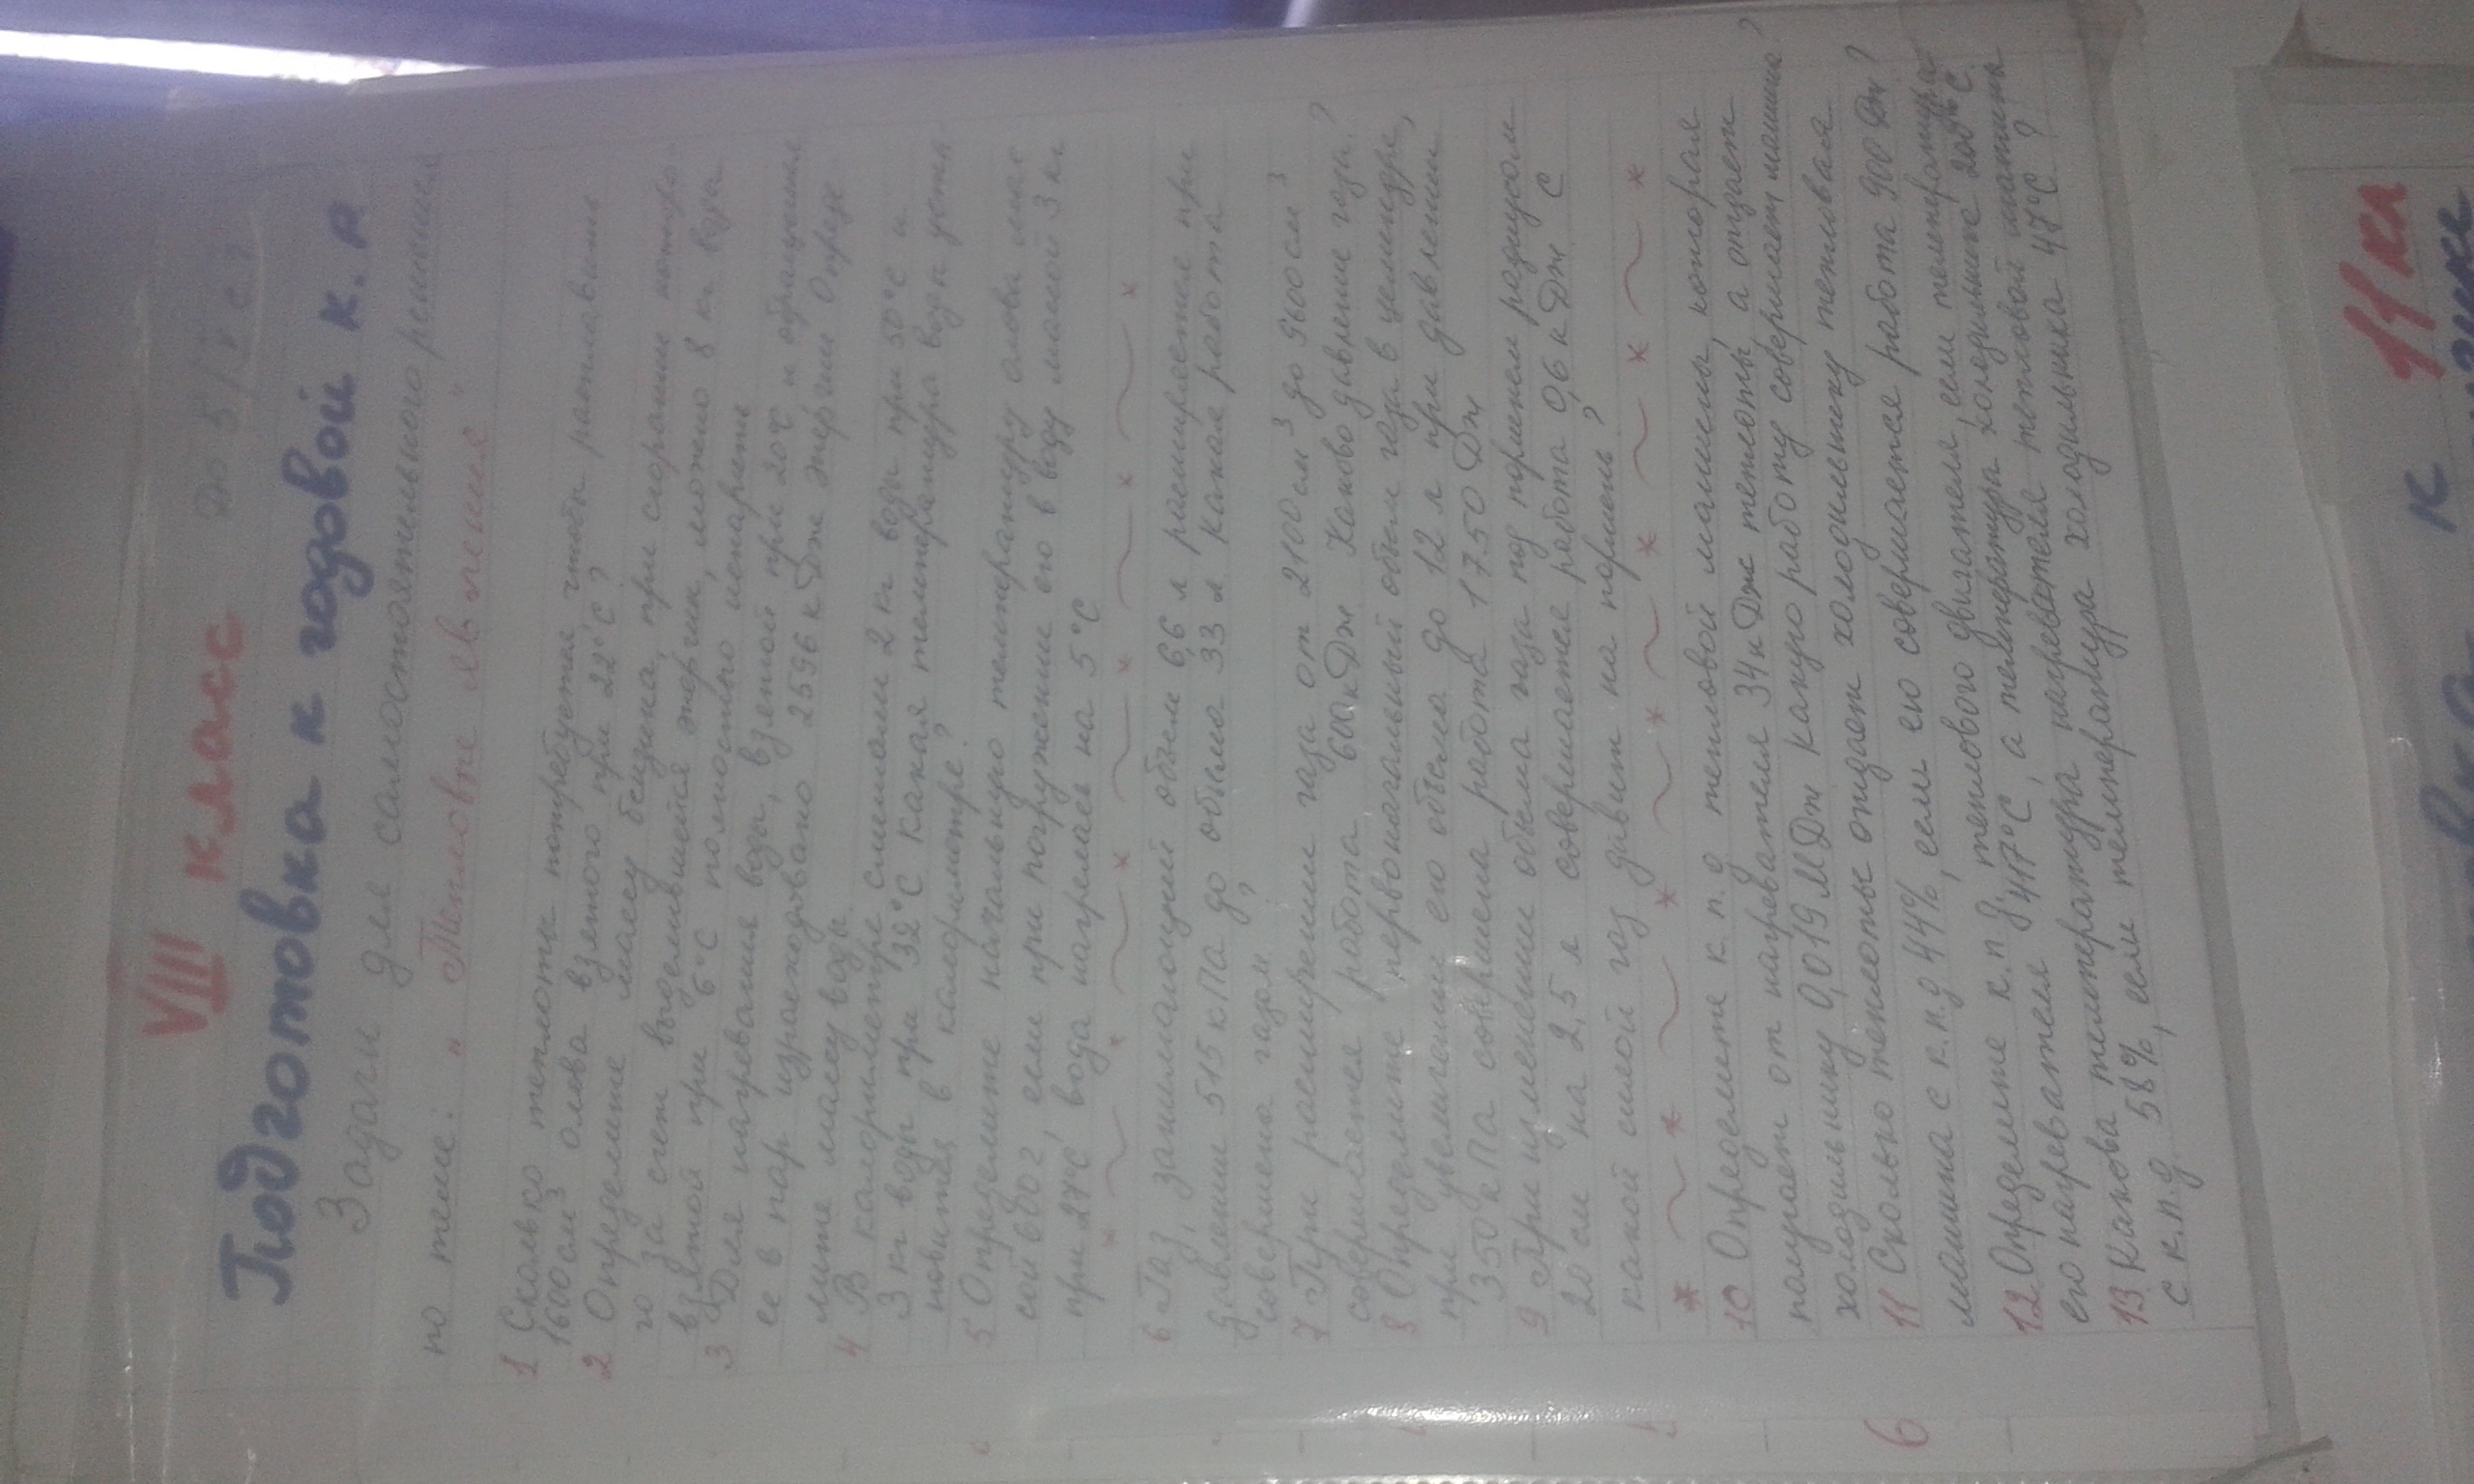 До 5/V с.г
VIII класс
Подготовка к годовой к. р
Задачи для самостоятельного решения
по теме: "Тепловые явления"
1 Сколько теплоты потребуется чтобы расплавить
1600 см3 олова взятого при 22°С?
2 Определите массу бензина, при сгорании которо-
го за счет выделившейся энергии, можно 8 кг воды
взятой при 6°С полностью испарить
3 Для нагревания воды, взятой при 20°С и обращения
ее в пар израсходовано 2596 кДж энергии Опреде
лите массу воды.
4 В калориметре смешали 2 кг воды при 50°С и
3 кг воды при 32°С Какая температура воды уста-
новится в калориметре?
5 Определите начальную температуру олова мас
сой 600г если при погружении его в воду массой 3 кг
при 27°С, вода нагрелась на 5°С
6 Газ, занимающий объем 6,6 л расширяется при
давлении 515 кПа до объема 33 л Какая работа
совершена газом?
7 При расширении газа от 2100 см3 до 9600 см3
совершается работа 600 кДж Каково давление газа?
8 Определите первоначальный объем газа в цилиндре,
при увеличении его объема до 12 л при давлении
350 кПа совершена работа 1750 Дж
9 При изменении объема газа под поршнем радиусом
20 см на 2,5 л совершается работа 0,6 кДж С
какой силой газ давит на поршень?
10 Определите к. п. д тепловой машины, которая
получает от нагревателя 34 кДж теплоты, а отдает
холодильнику 0,019 МДж Какую работу совершает машина?
11 Сколько теплоты отдает холодильнику тепловая
машина с к.п.д 44%, если ею совершается работа 900 Дж?
12 Определите к.п.д. теплового двигателя, если температура
его нагревателя 417°С, а температура холодильника 200°С.
13 Какова температура нагревателя тепловой машины
с к.п.д 58%, если температура холодильника 47°С ?
6
11 кл
к